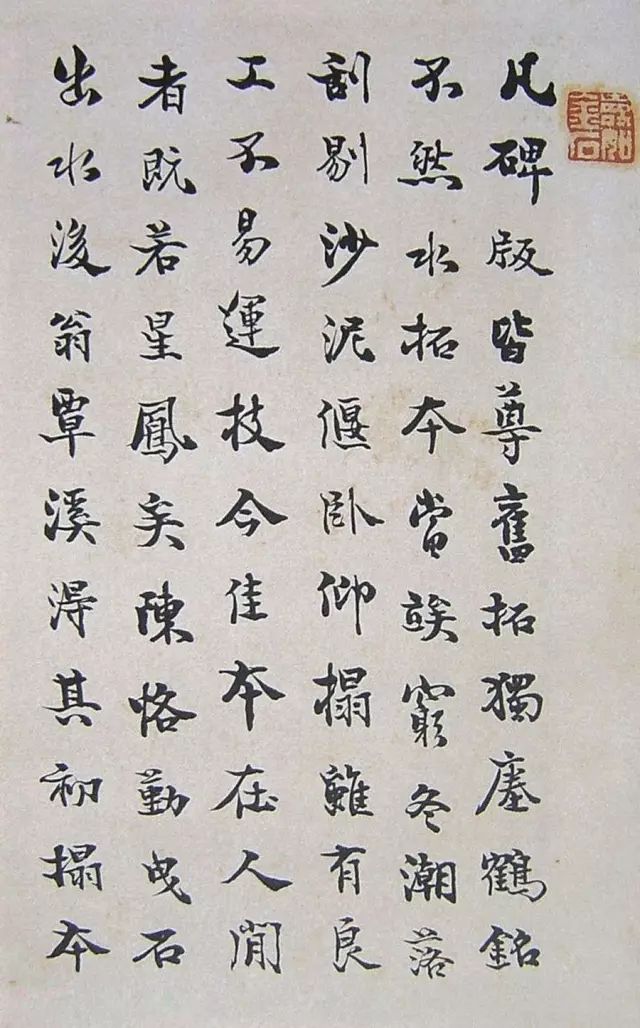 凡碑版皆尊舊拓獨瘞鶴銘
不然水拓本當竢窮冬潮落
刮剔沙泥偃卧仰搨雖有良
工不易運技今佳本在人間
者既若星鳳矣陳恪勤曳石
出水後翁覃溪得其初搨本